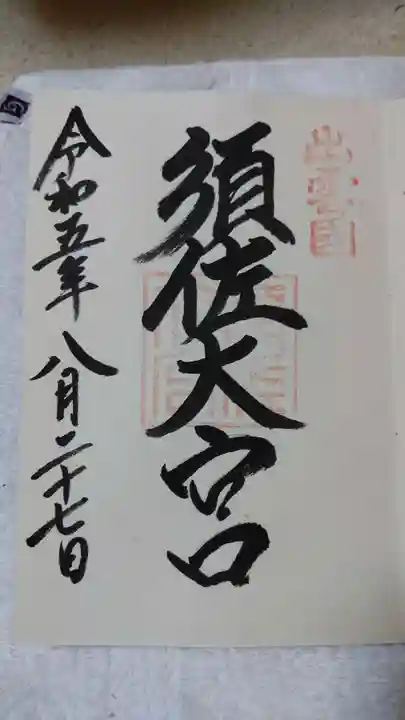 出雲国
須佐大宮
令和五年八月二十七日